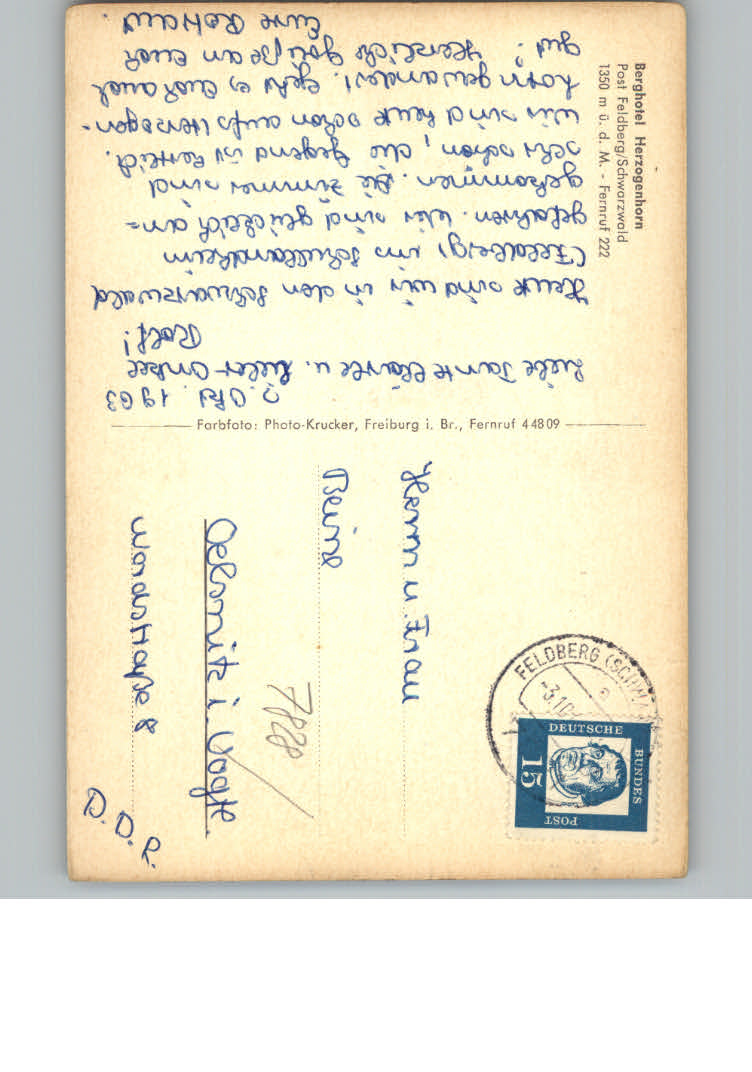 Berghotel Herzogenhorn
Post Feldberg/Schwarzwald
1350 m ü. d. M. - Fernruf 222
2. Okt. 1963
Liebe Tante u. Lieber Onkel
Rolf!
Heute sind wir in den Schwarzwald
(Feldberg) im Schullandheim
gefahren. Wir sind glücklich an=
gekommen. Die Zimmer sind
sehr schön, die Gegend ist herrlich.
Wir sind heute schon aufs Herzogen-
horn gewandert. Geht es Euch auch
gut? Herzliche Grüße an Euch
Eure
Farbfoto: Photo-Krucker, Freiburg i. Br., Fernruf 44809
Herrn u. Frau
Oelsnitz i. Vogtl.
8
D.D.R.
7828
FELDBERG (SCHW
-3.10
DEUTSCHE
BUNDES
POST
15